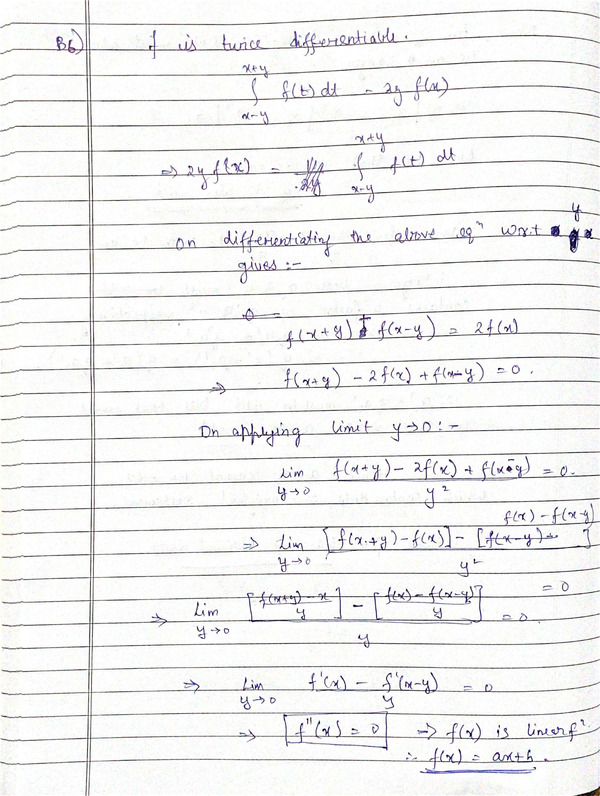 B6) f is twice differentiable.
x+y
∫ f(t) dt = 2y f(x)
x-y
x+y
⇒ 2y f(x) = ∫ f(t) dt
x-y
On differentiating the above eqⁿ wrt y
gives :-
f(x+y) + f(x-y) = 2f(x)
⇒ f(x+y) - 2f(x) + f(x-y) = 0.
On applying limit y→0 :-
lim f(x+y) - 2f(x) + f(x-y) = 0.
y→0 y²
f(x) - f(x-y)
⇒ lim [f(x+y) - f(x)] - [ ]
y→0 y²
= 0
⇒ lim [f(x+y) - x / y] - [f(x) - f(x-y) / y] = 0
y→0 y
⇒ lim f'(x) - f'(x-y) = 0
y→0 y
⇒ f''(x) = 0 ⇒ f(x) is linear fⁿ.
∴ f(x) = ax+b.